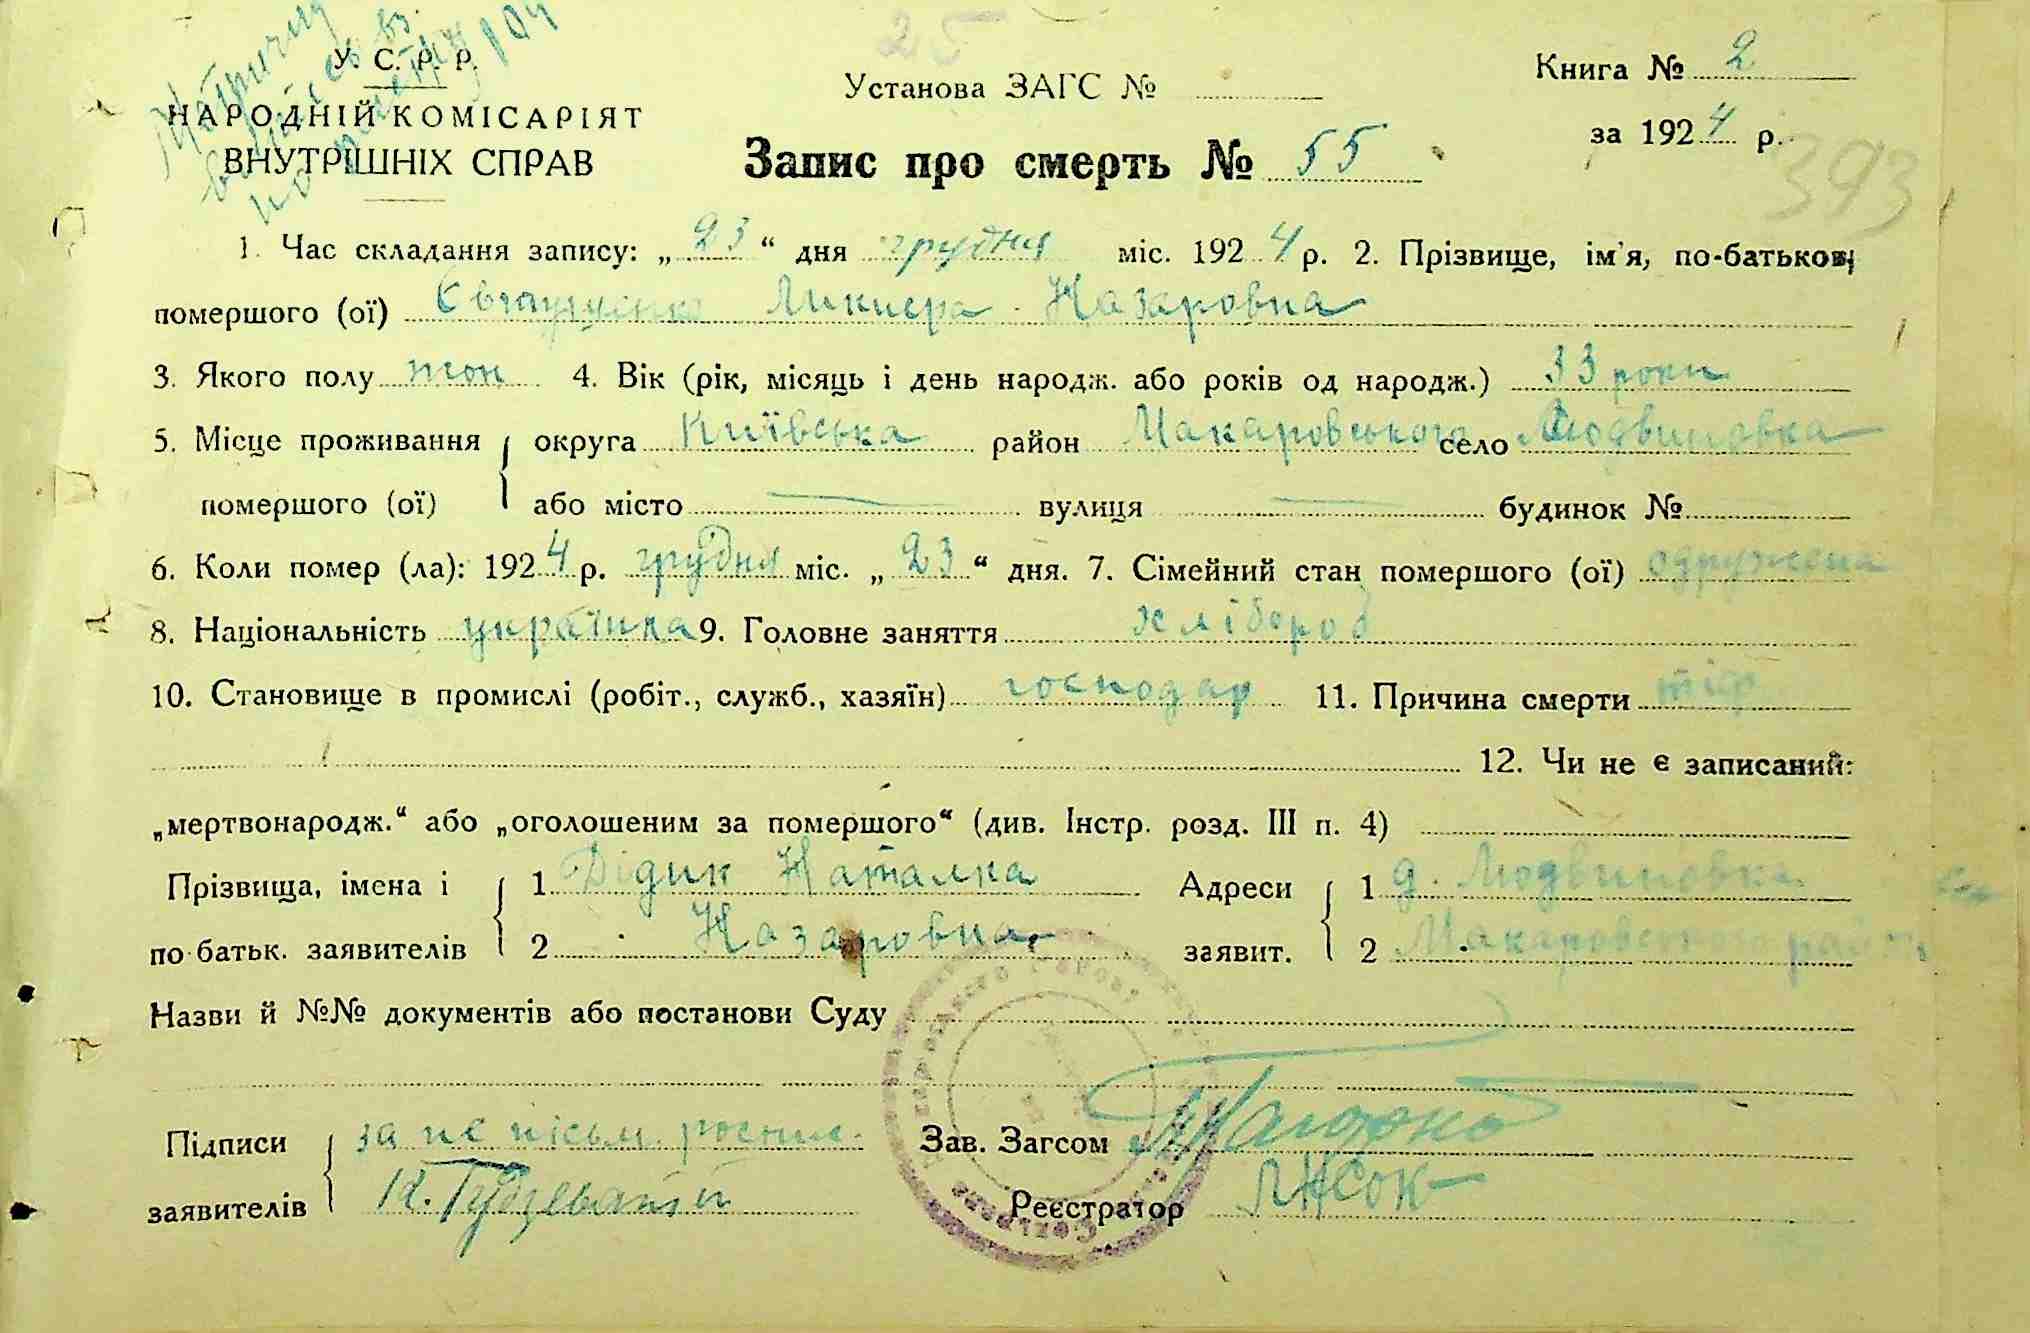 25
У. С. Р. Р.
НАРОДНІЙ КОМІСАРІЯТ
ВНУТРІШНІХ СПРАВ
Установа ЗАГС №
Запис про смерть № 55
Книга № 2
за 1924 р.
393
1. Час складання запису: „23“ дня грудня міс. 1924 р. 2. Прізвище, ім'я, по-батькові
помершого (ої) Ликиера Назаровна
3. Якого полу жон 4. Вік (рік, місяць і день народж. або років од народж.) 33 роки
5. Місце проживання округа Київська район Макаровського село Людвиновка
помершого (ої) або місто — вулиця — будинок №
6. Коли помер (ла): 1924 р. грудня міс. „23“ дня. 7. Сімейний стан помершого (ої) одружена
8. Національність українка 9. Головне заняття хлібороб
10. Становище в промислі (робіт., служб., хазяїн) господар 11. Причина смерти тіф
12. Чи не є записаний:
„мертвонародж.“ або „оголошеним за помершого“ (див. Інстр. розд. III п. 4)
Прізвища, імена і 1 Дідик Наталка Адреси 1 д. Людвиновка
по батьк. заявителів 2 Назаровна заявит. 2 Макаровського район
Назви й №№ документів або постанови Суду
Підписи за не письм. росписи. Зав. Загсом
заявителів Реєстратор